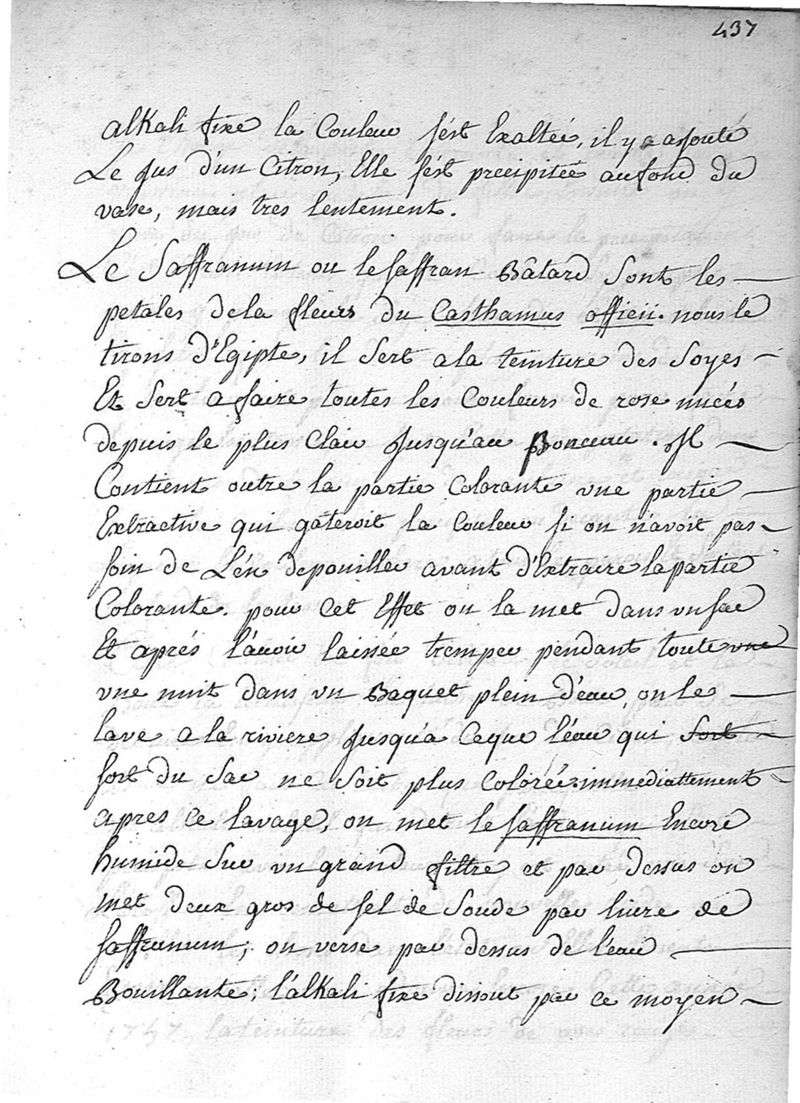 437
alkali fixe la Couleur s'ést Exaltée, il y a ajouté
Le jus d'un Citron, Elle s'ést precipitée au fond du
vase, mais tres lentement.
Le Saffranum ou le saffran Bâtard sont les
petales de la fleurs du Casthamus officii. nous le
tirons d'Egipte, il sert a la teinture des Soyes
Et sert a faire toutes les Couleurs de rose
depuis le plus Clair Jusqu'au Ponceau. Il
Contient outre la partie Colorante une partie
Extractive qui gâteroit la Couleur si on n'avoit pas
soin de L'en depouiller avant d'Extraire la partie
Colorante. pour cet Effet on la met dans un sac
Et aprés l'avoir laissée tremper pendant toute une
une nuit dans un Baquet plein d'eau, on le
lave a la riviere Jusqu'a Ceque l'éau qui sort
sort du Sac ne soit plus Colorée. immediattement
apres ce lavage, on met le saffranum Encore
humide sur un grand filtre et par dessus on
met deux gros de sel de Soude par livre de
saffranum; on verse par dessus de l'éau
Bouillante; l'alkali fixe dissout par ce moyen